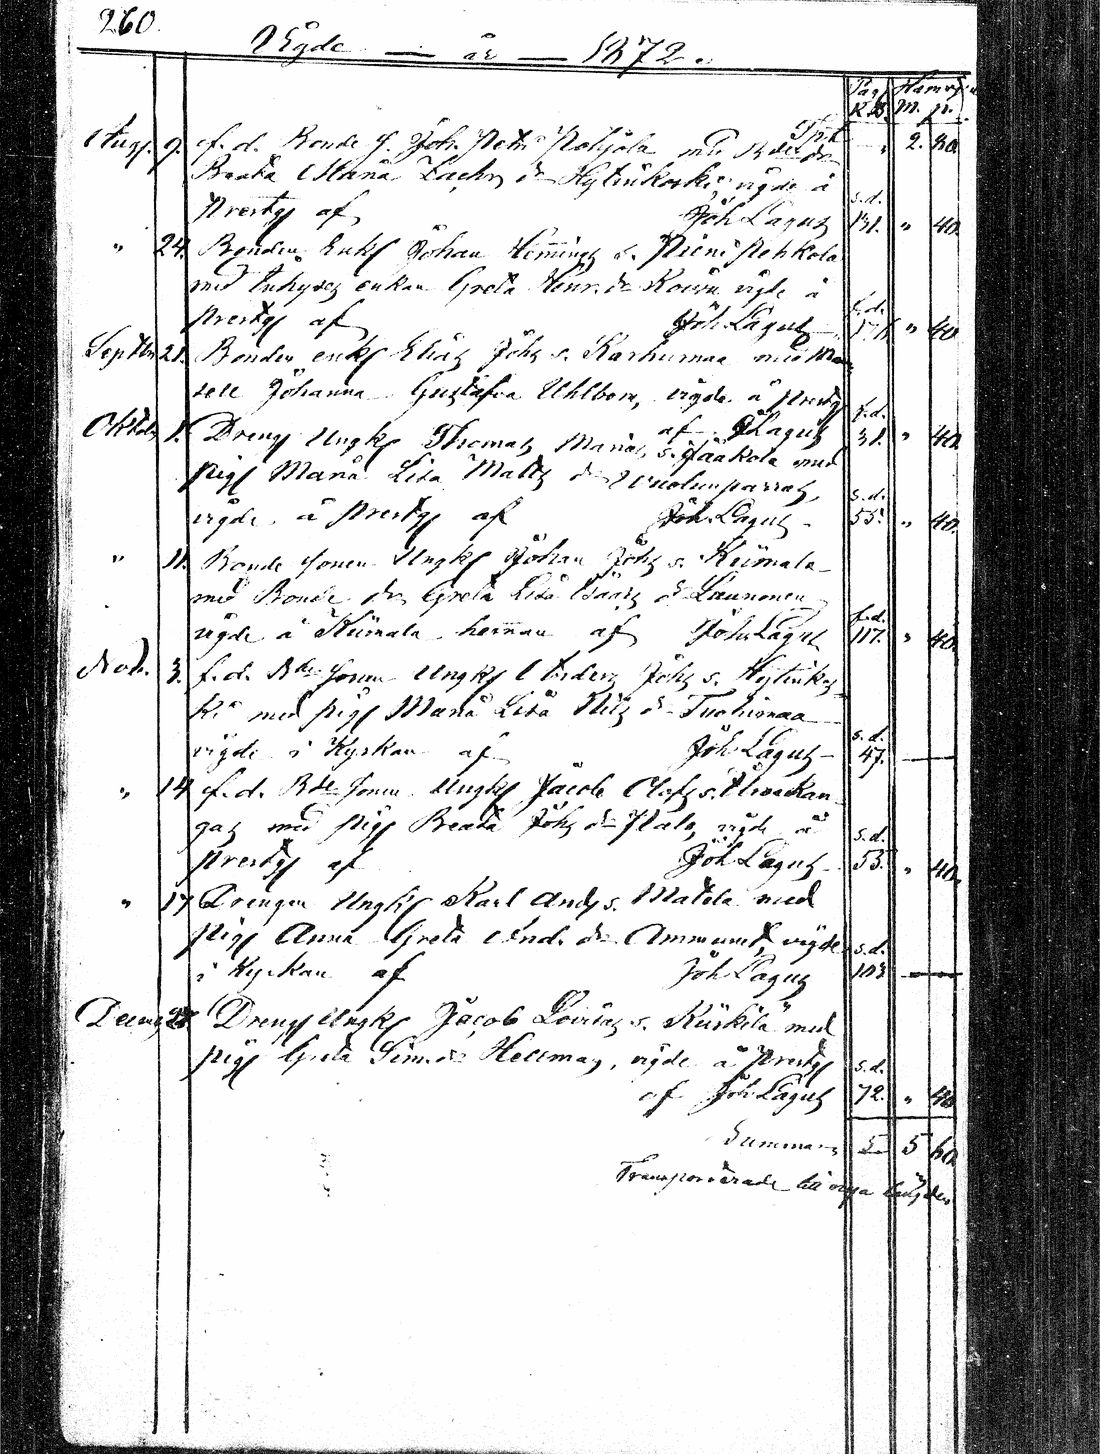 260.
Vigde — år — 1872.
Pag. Hemvign.
K.B. M. p.
Trpt " 2. 80.
Aug. 9. f. d. Bonde s. Joh. Petri Pohjola med B.de dr
Beata Maria Zachr. dr Hytinkoski, vigde å s.d.
Prestg af Joh. Lagus 131. " 40.
" 24. Bonden Enkl Johan Hemmings s. Pieni Pehkola
med Inhyses enkan Greta Henr. dr vigde å f.d.
Prestg af Joh. Lagus " 40
Septbr 21. Bonden enkl Elias Johs s. Karhumaa med Mam
sell Johanna Gustafva Uhlbom, vigde å Prestg f.d.
af J. Lagus 31. " 40
Oktob. 1. Dreng Ungkl Thomas Marias s. Jaakola med
pig Maria Lisa Matts dr s.d.
vigde å Prestg af Joh. Lagus 55. " 40.
" 11. Bonde sonen Ungkl Johan Johs s. Keimala
med Bonde dr. Greta Lisa Isaks dr Launonen f.d.
vigde å Keimala hemman af Joh. Lagus 117. " 40
Nov. 3. f. d. B.de sonen Ungkl Anders Johs s. Hytinkos
ki med pig Maria Lisa Nils dr Tuohimaa s.d.
vigde i Kyrkan af Joh. Lagus 47. —
" 14 f. d. B.de sonen Ungkl Jacob Olofs s. Ylivaikan
gas med pig Beata Johs dr Palo, vigde å s.d.
Prestg af Joh. Lagus 53. " 40.
" 17 Drengen Ungkl Karl Ands s. Matela med
pig Anna Greta And. dr Ammunet, vigde s.d.
i Kyrkan af Joh. Lagus 103 —
Decemb 28. Dreng Ungkl Jacob Lovisas s. Kiiskilä med
pig Greta Sim. dr Hellman, vigde å Prestg s.d.
af Joh. Lagus 72. " 40
Summa 5 60
Transporterade till nya längden